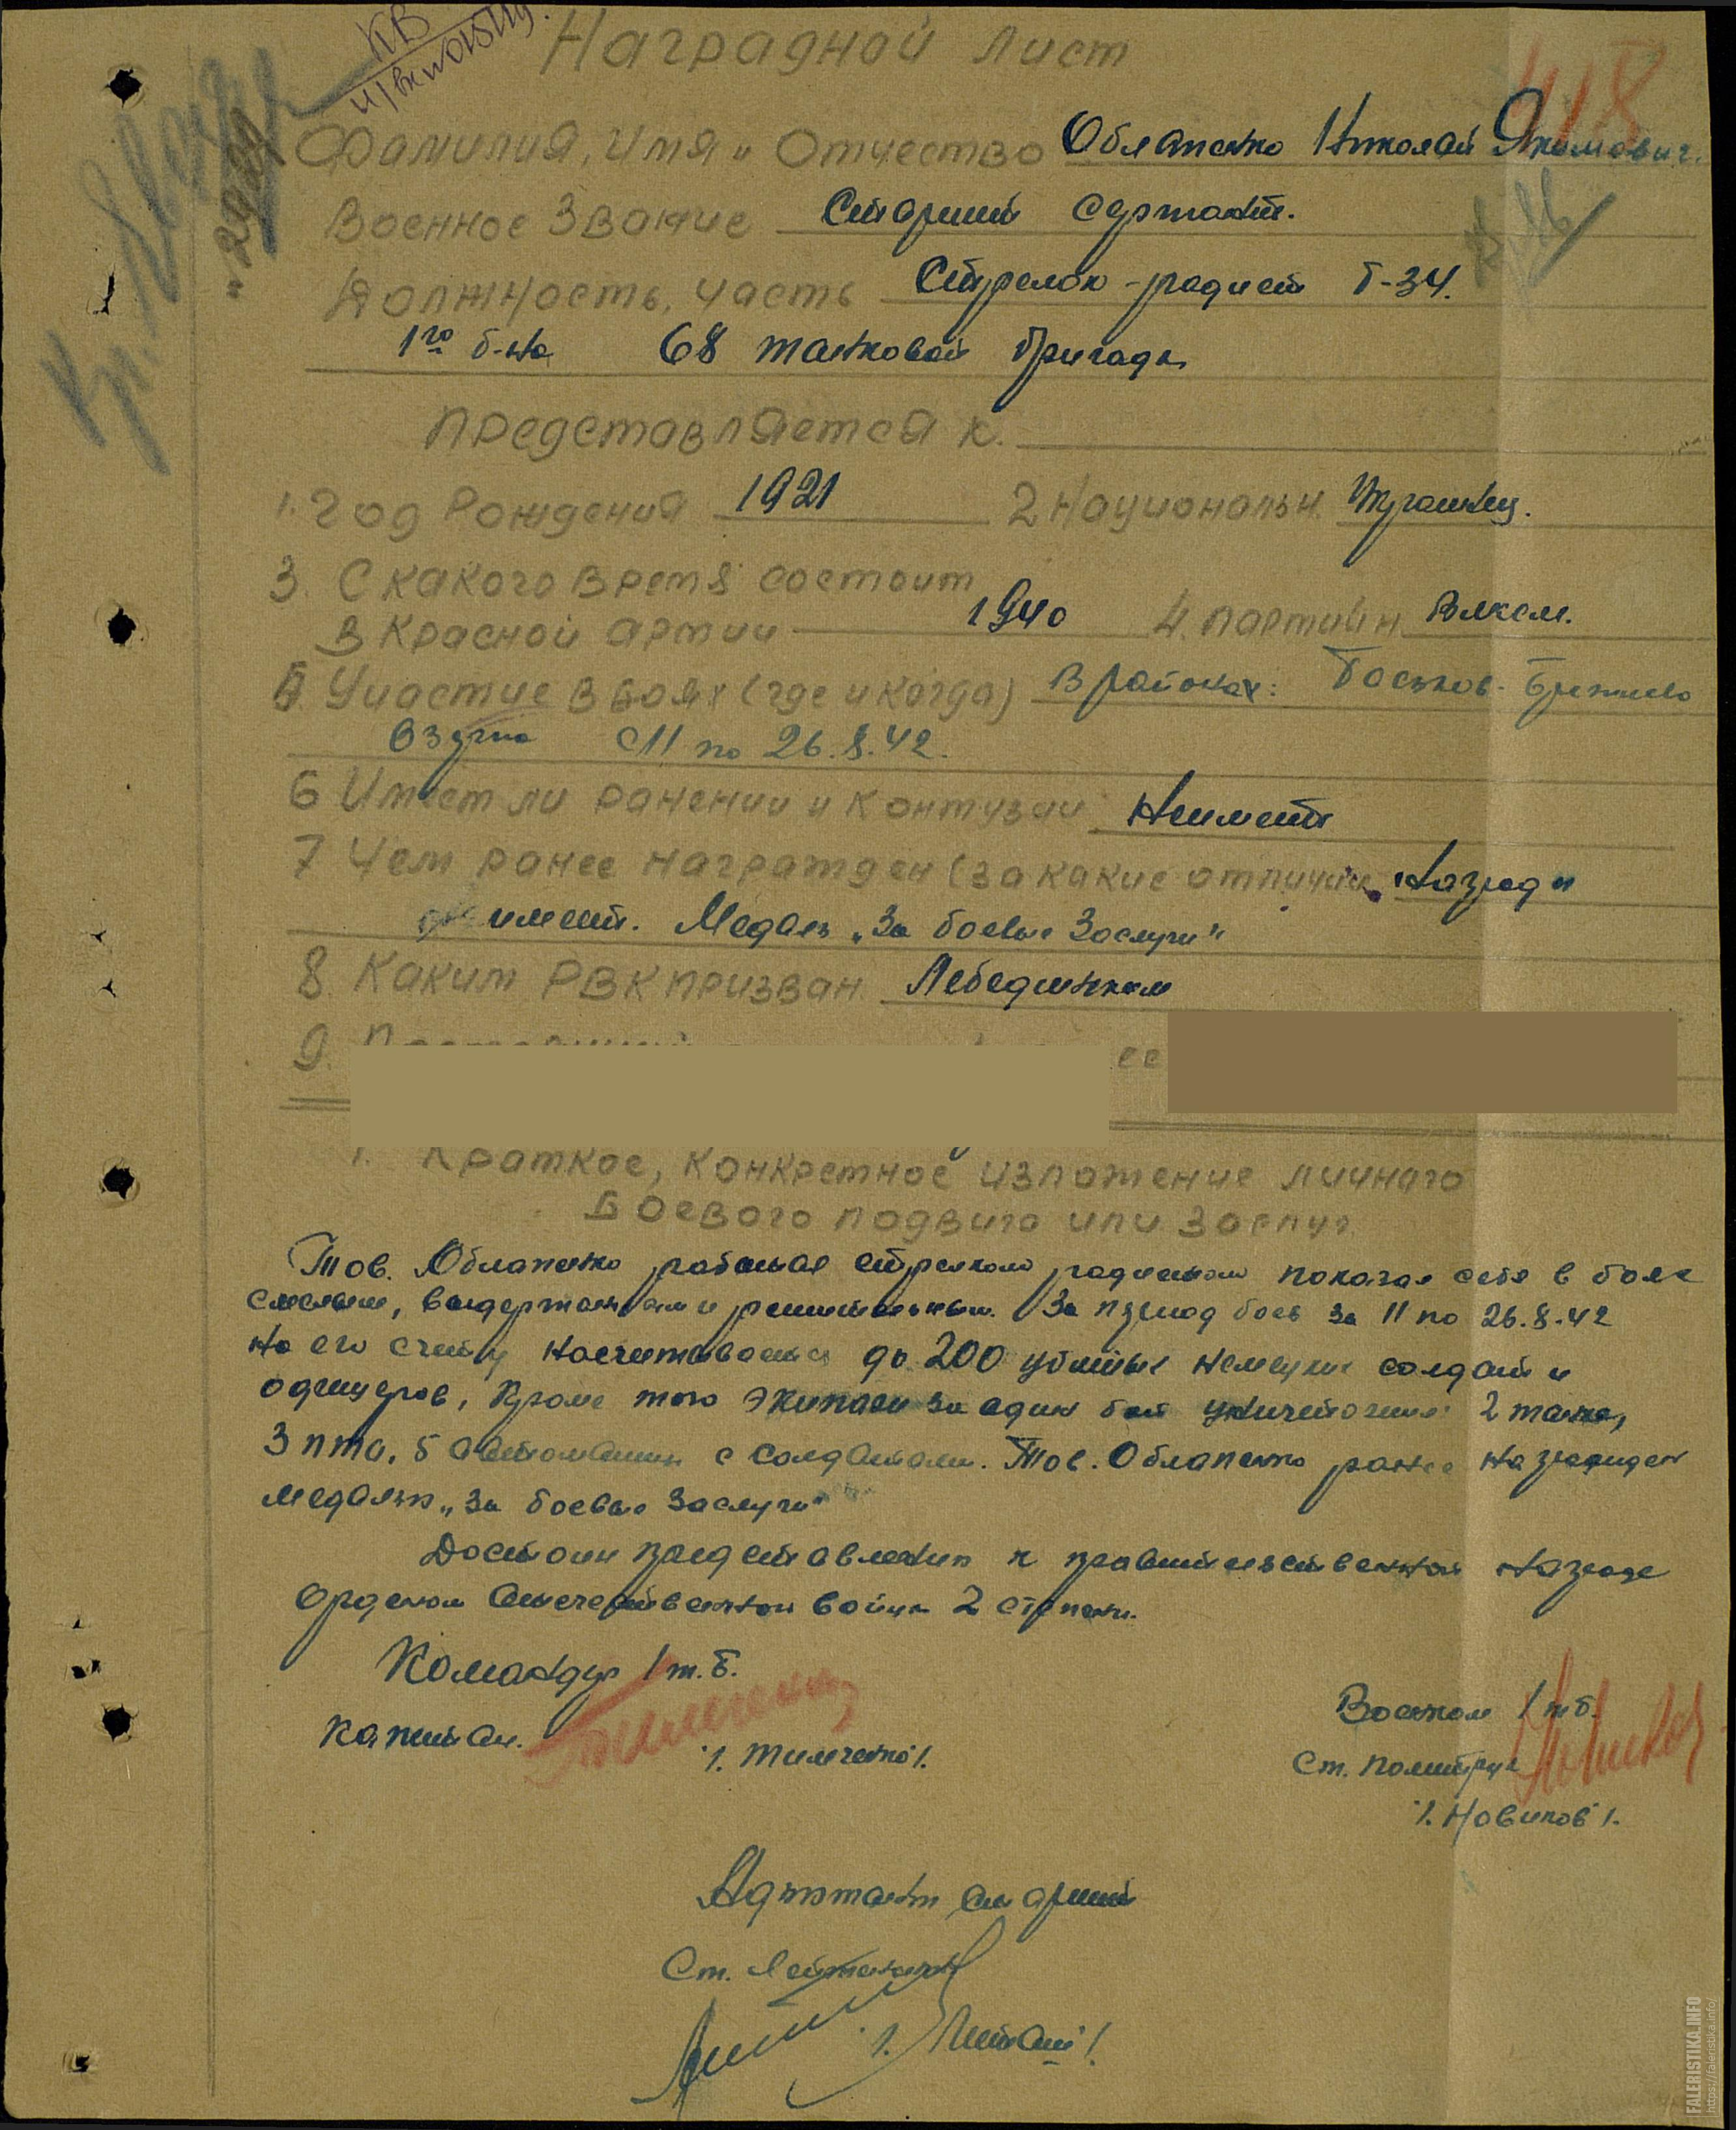 Наградной лист
418
Фамилия, Имя и Отчество Облапенко Николай Якимович.
Военное Звание Старший сержант.
Должность, часть Стрелок-радист Т-34.
1го б-на 68 танковой бригады
представляется к.
1. Год Рождения 1921 2 Националън. Украинец.
3. С какого время состоит
в Красной армии 1940 4. партийн. Влксм.
5 Участие в боях (где и когда) В районах:
с 11 по 26.8.42.
6 Имеет ли ранении и контузии Неимеет
7 Чем ранее награжден (за какие отличия Награды
имеет. Медаль „За боевые Заслуги"
8. Каким РВК призван Лебединским
9.
1. Краткое, конкретное изложение личного
боевого подвига или заслуг
Тов. Облапенко работая стрелком радистом показал себя в боях
смелым, выдержанным и решительным. За период боев за 11 по 26.8.42
на его счету насчитывается до 200 убитых немецких солдат и
офицеров, Кроме того экипаем за один бой уничтожено: 2 танка,
3 пто, 5 автомашин с солдатами. Тов. Облапенко ранее награжден
медалью „За боевые Заслуги"
Достоин представлению к правительственной награде
Орденом Отечественной войны 2 степени.
Командир 1 т.б.
капитан.
/. Тимченко /.
Военком 1 тб.
Ст. политрук
/. Новиков /.
Адъютант старший
Ст. Лейтенант
FALERISTIKA.INFO
https://faleristika.info/